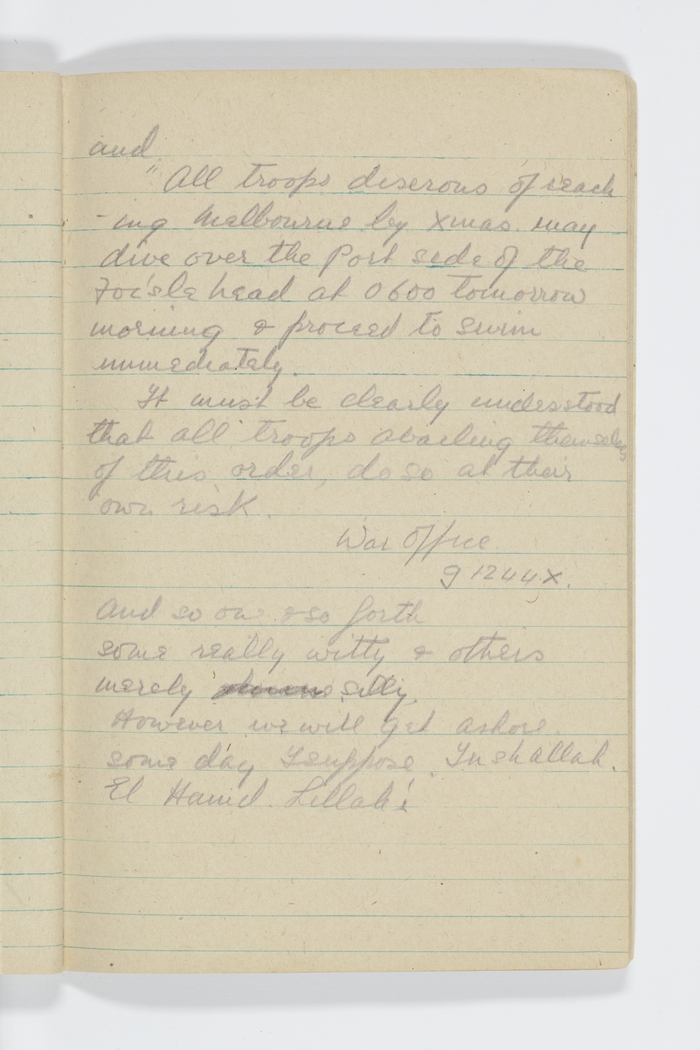 and
" All troops diserous of reach
-ing Melbourne by Xmas. may
dive over the Port side of the
Foc'sle head at 0600 tomorrow
morning & proceed to swim
immediately.
It must be clearly understood
that all troops availing themselves
of this order, do so at their
own risk.
War Office
91244X.
And so on & so forth
some really witty & others
merely silly.
However we will get ashore
some day I suppose. Inshallah.
El Hamd. Lillah!